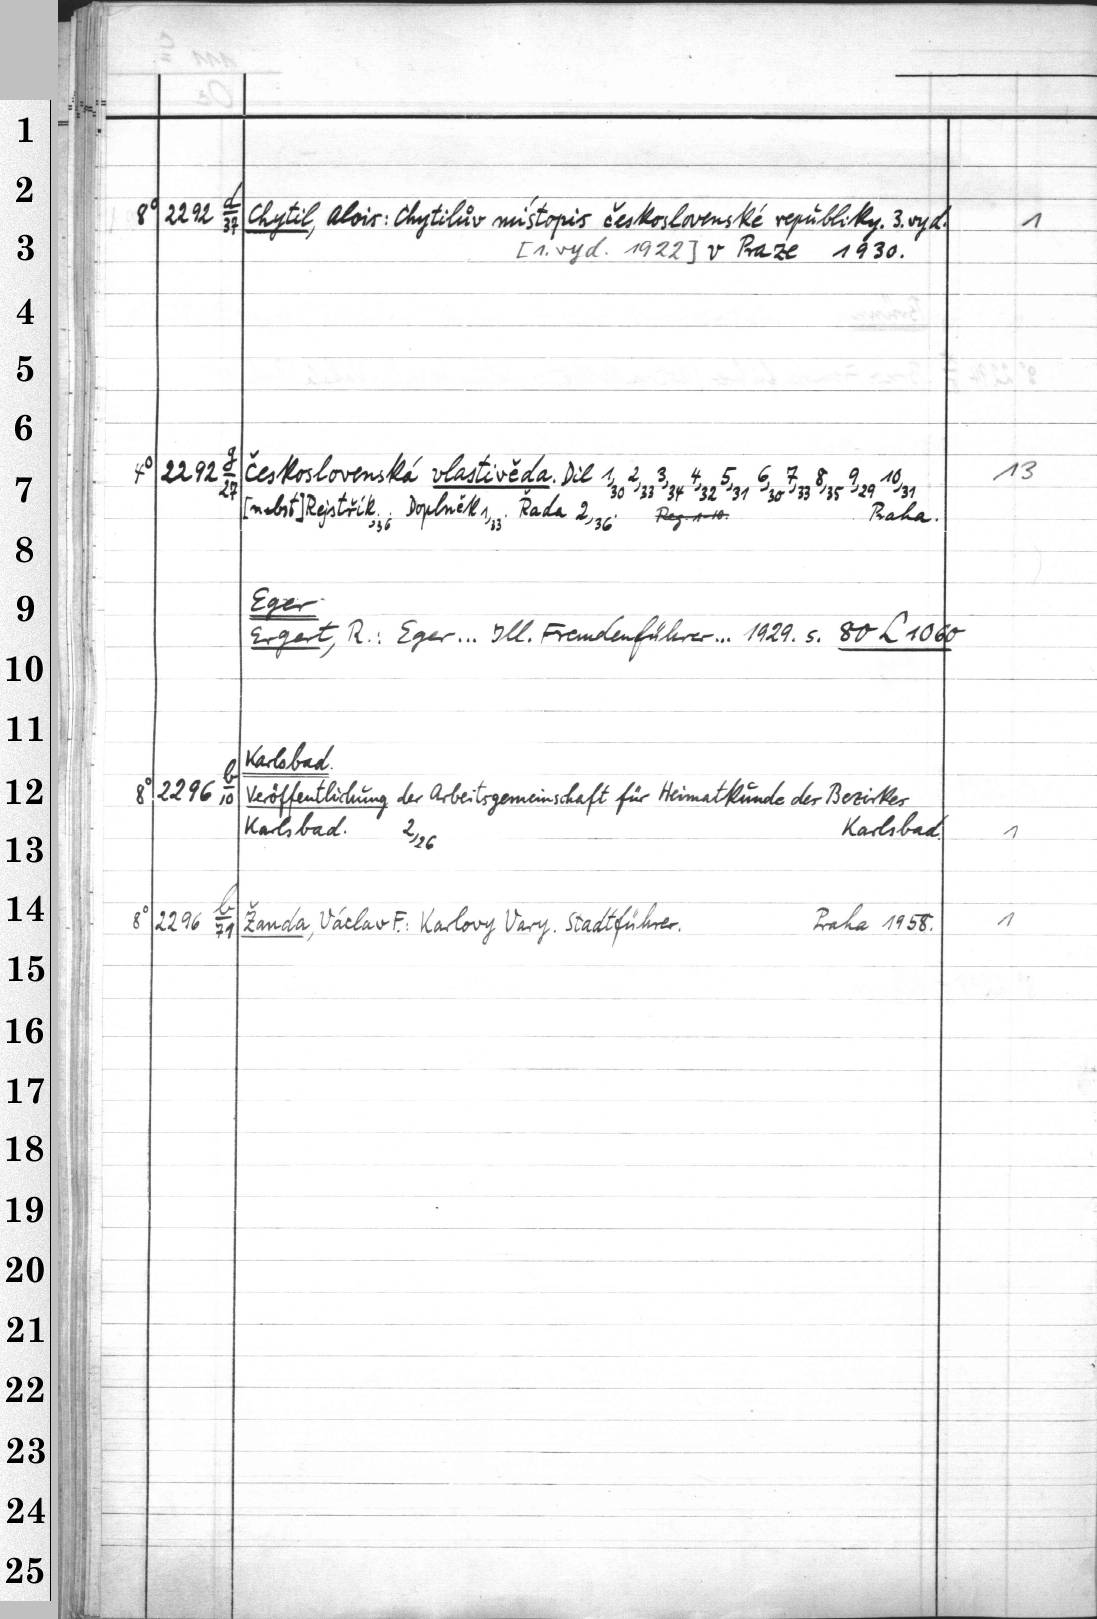 1
2
8° 2292 d/37 Chytil, Alois: Chytilův místopis československé republiky. 3. vyd. 1
3
[1. vyd. 1922] v Praze 1930.
4
5
6
4° 2292 g/27 Československá vlastivěda. Díl 1,30 2,33 3,34 4,32 5,31 6,30 7,33 8,35 9,29 10,31 13
7
[nebst] Rejstřík,36. Doplněk 1,33. Řada 2,36. Reg. 1-10. Praha.
8
9
Eger
Ergert, R.: Eger... Ill. Fremdenführer... 1929. s. 80 L 1060
10
11
Karlsbad.
12
8° 2296 b/10 Veröffentlichung der Arbeitsgemeinschaft für Heimatkunde des Bezirkes
Karlsbad. 2,26 Karlsbad. 1
13
14
8° 2296 b/71 Žanda, Václav F.: Karlovy Vary. Stadtführer. Praha 1958. 1
15
16
17
18
19
20
21
22
23
24
25